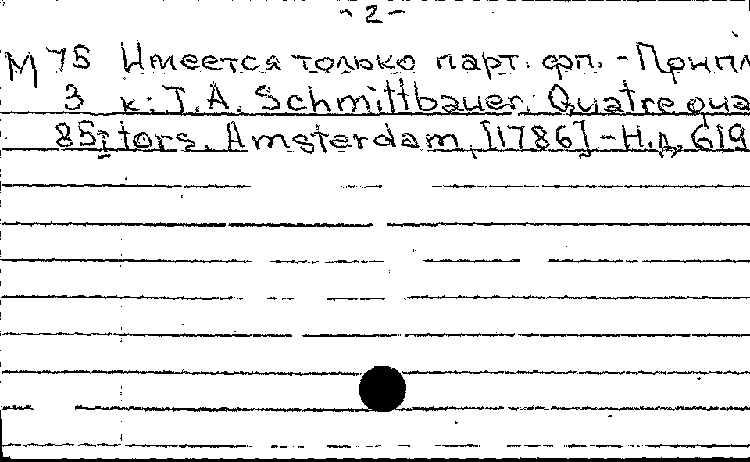 - 2 -
М 75 Имеется только парт. фп. - Припл
3 к: J.A. Schmittbauer. Quatre qua
85; tors. Amsterdam, [1786] - Н.д. 619